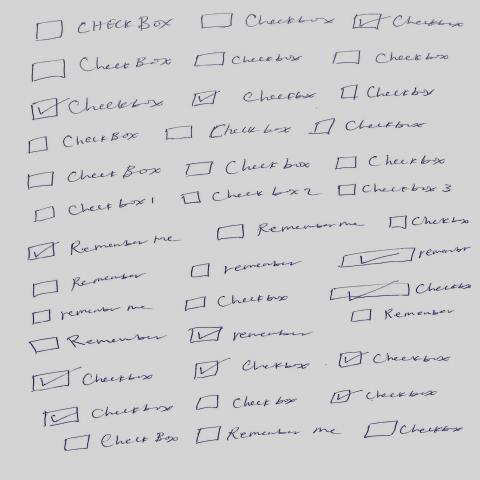 CHECKBOX Checkbox Checkbox
CheckBox Checkbox Checkbox
Checkbox Checkbox Checkbox
CheckBox Checkbox Checkbox
CheckBox Checkbox Checkbox
Checkbox1 Checkbox2 Checkbox3
Remember Me Remember me Checkbox
Remember remember remember
remember me Checkbox Checkbox
Remember remember Remember
Checkbox Checkbox Checkbox
Checkbox Checkbox Checkbox
CheckBox Remember me Checkbox